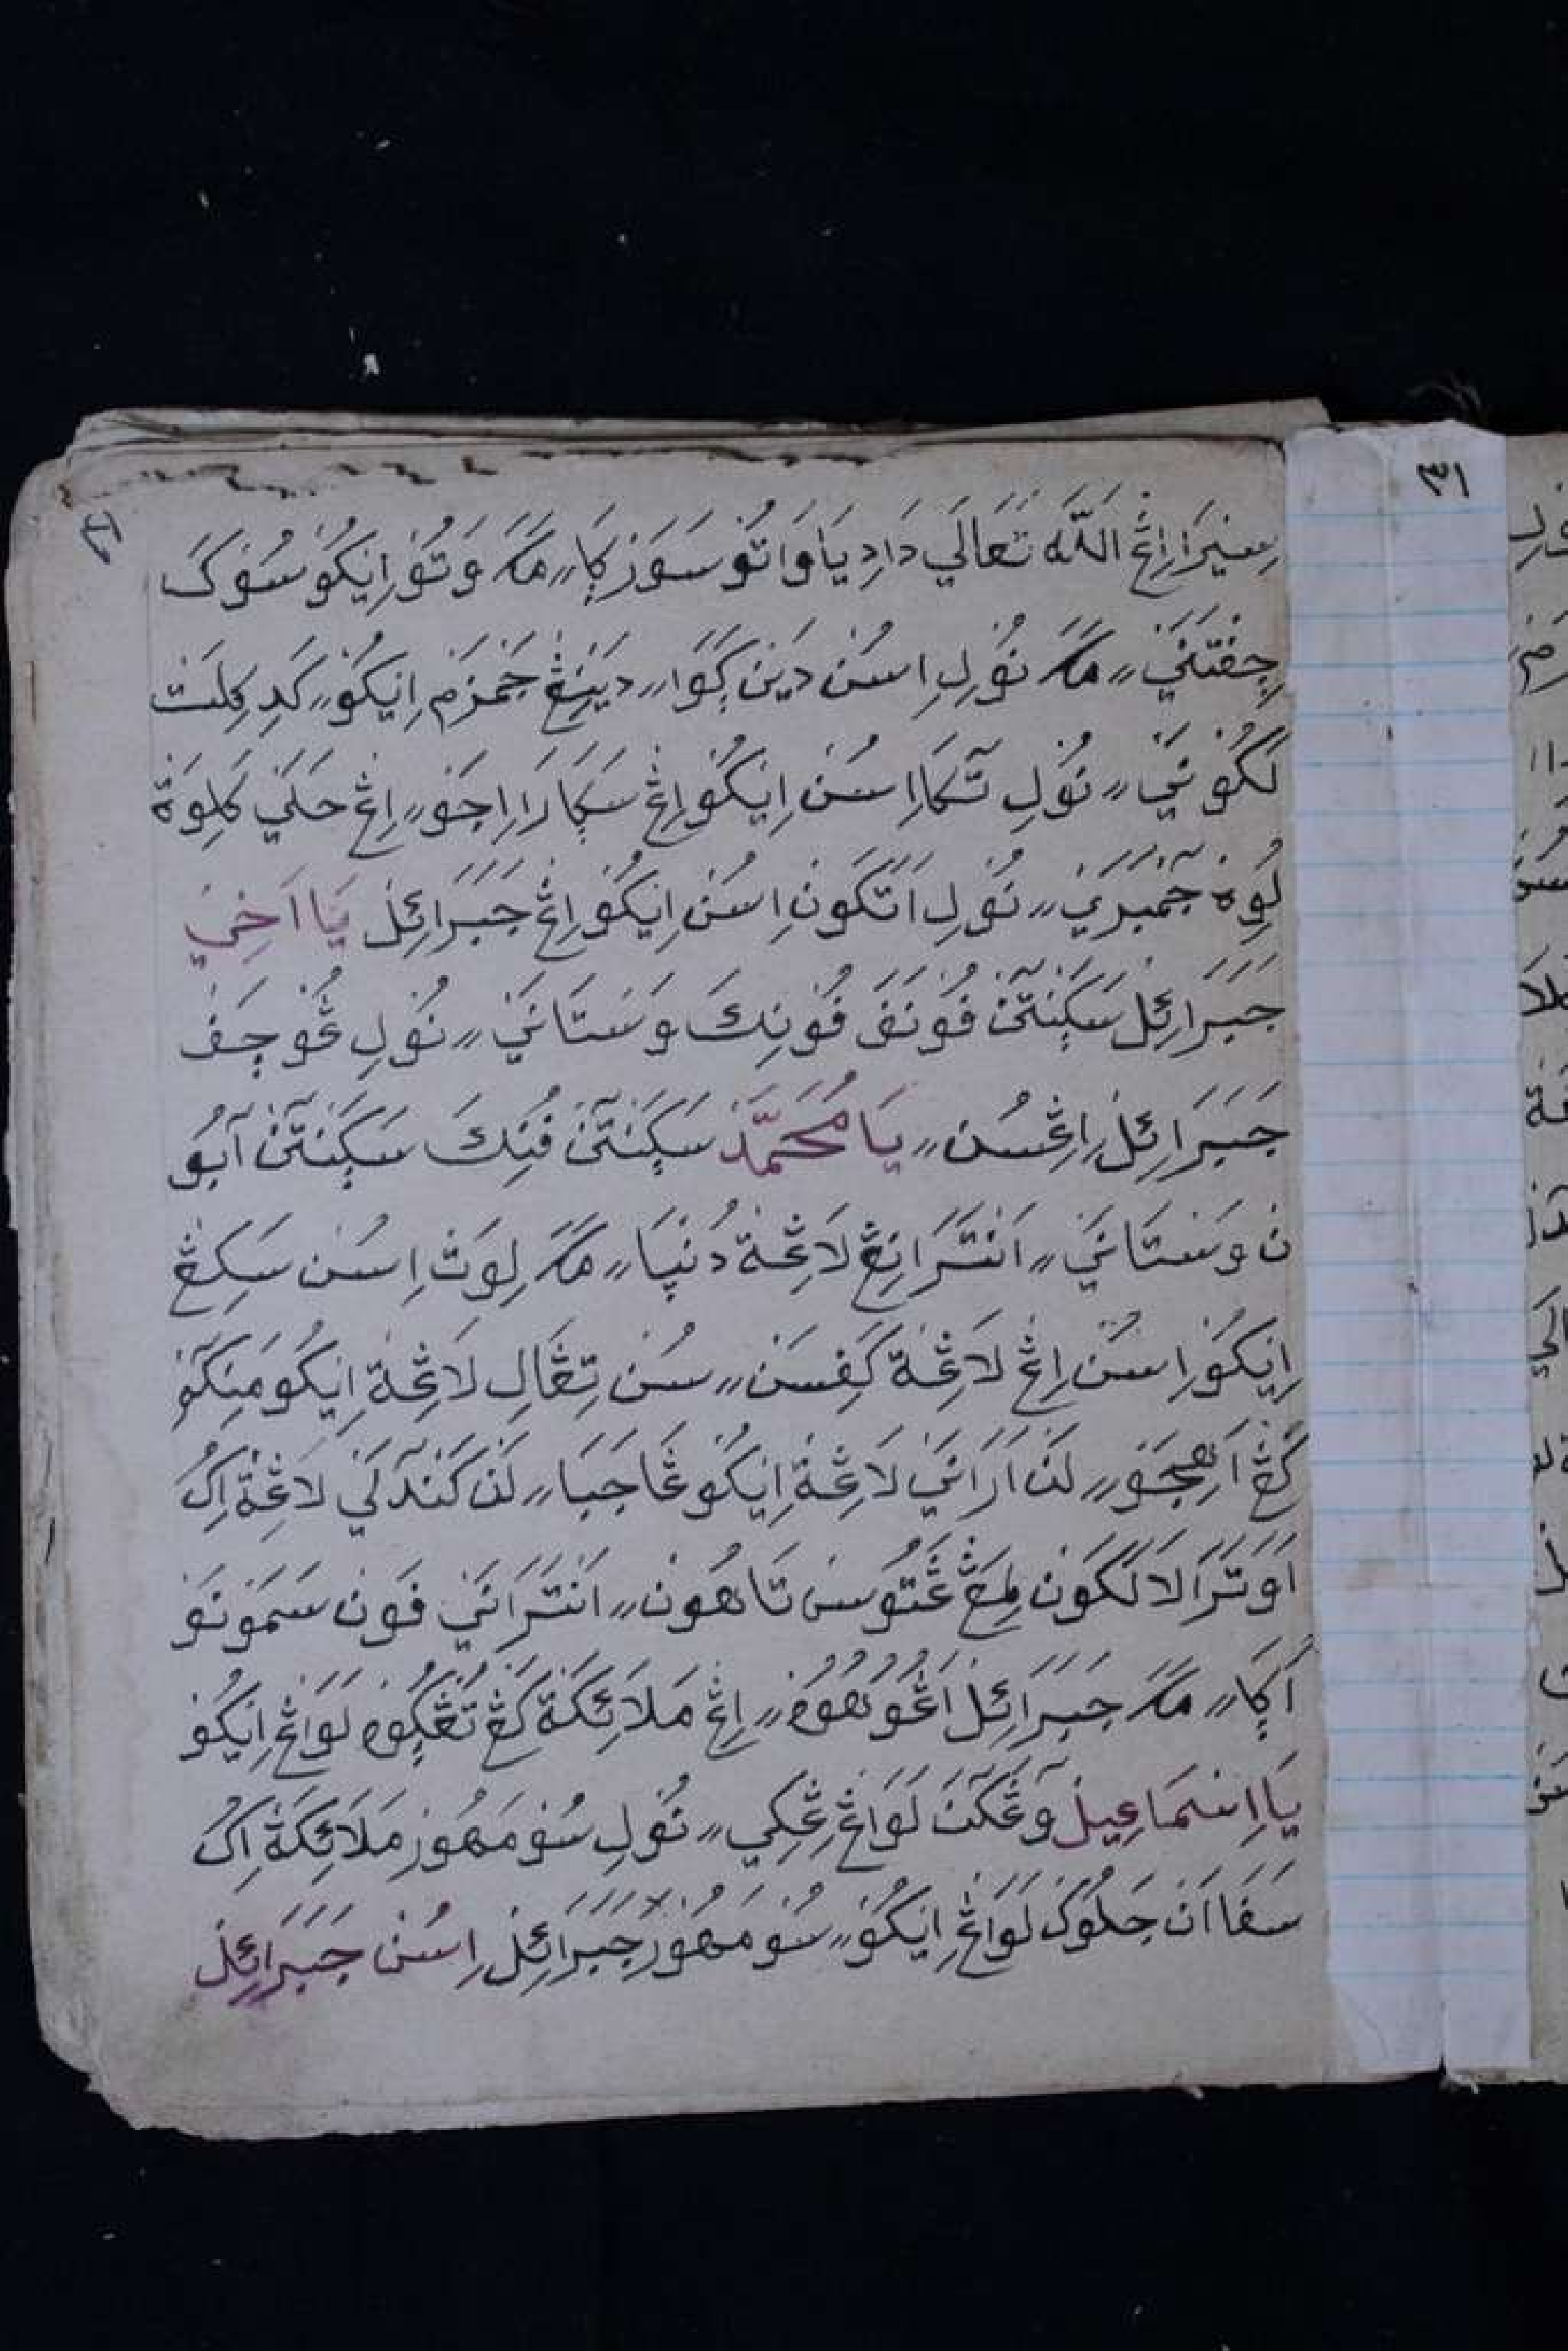 سِيْرَا اِڠْ اَللّٰه تَعَالَي دَادِ يَا وَاتُوْ سَوَرْݢَا〃 مَڪَ وَتُوْ اِيْكُوْ سُوْكَ
چِفْتَنَيْ〃 مَڪَ نُوْلِ اِسُنْ دَيْنْ ݢَوَا〃 دَيْنِڠْ جَمْزَمْ اِيْكُوْ〃 كَدِ كِلَتْ
لَكُوْنَيْ〃 نُوْلِ تَكَا اِسُنْ اِيْكُوْ اِڠْ سَݢَارَا اِجَوْ〃 اِڠْ حَلَيْ كَلِوَةْ
لُوِهْ جَمْبَرَيْ〃 نُوْلِ اَتَكَوْنْ اِسُنْ اِيْكُوْ اِڠْ جَبَرَائِلْ يَا اَخِيْ
جَبَرَائِلْ سَݢَنْتَنْ فُوْنَفَ فُوْنِكَ وَسْتَانَيْ〃 نُوْلِ ڠُوْچَفْ
جَبَرَائِلْ اِڠْسُنْ〃 يَا مُحَمَّدْ سَݢَنْتَنْ فُنِكَ سَݢَنْتَنْ اَبُوْ
نْ وَسْتَانَيْ〃 اَنْتَرَانِڠْ لَاڠِةْ دُنْيَا〃 مَڪَ لِوَتْ اِسُنْ سَكِڠْ
اِيْكُوْ اِسُنْ اِڠْ لَاڠِةْ كَفِسَنْ〃 سُنْ تِڠَالِ لَاڠِةْ اِيْكُوْ مَنْكَوْ
كَڠْ اَهِجَوْ〃 لَنْ اَرَانَيْ لَاڠِةْ اِيْكُوْ ڠَاجَبَا〃 لَنْ كَنْدَلَيْ لَاڠِةْ اِكُ
اَوْتَرَا لَالَكَوْنْ لِمَڠْ ڠَتُوْسْ تَاهُوْنْ〃 اَنْتَرَانَيْ فَوْنْ سَمَوْنَوْ
اُݢَا〃 مَڪَ جَبَرَائِلْ اَڠُوْهُوْهْ〃 اِڠْ مَلَائِكَةْ كَڠْ تُڠْݢُوْهْ لَوَاڠْ اِيْكُوْ
يَا اِسْمَاعِيلْ وَڠَكَنْ لَوَاڠْ ڠْكِي〃 نُوْلِ سُوْمَهُوْرْ مَلَائِكَةْ اِكُ
سَفَا اَنْ جَلُوْكْ لَوَاڠْ اِيْكُوْ〃 سُوْمَهُوْرْ جَبَرَائِلْ اِسُنْ جَبَرَائِلْ
٣١